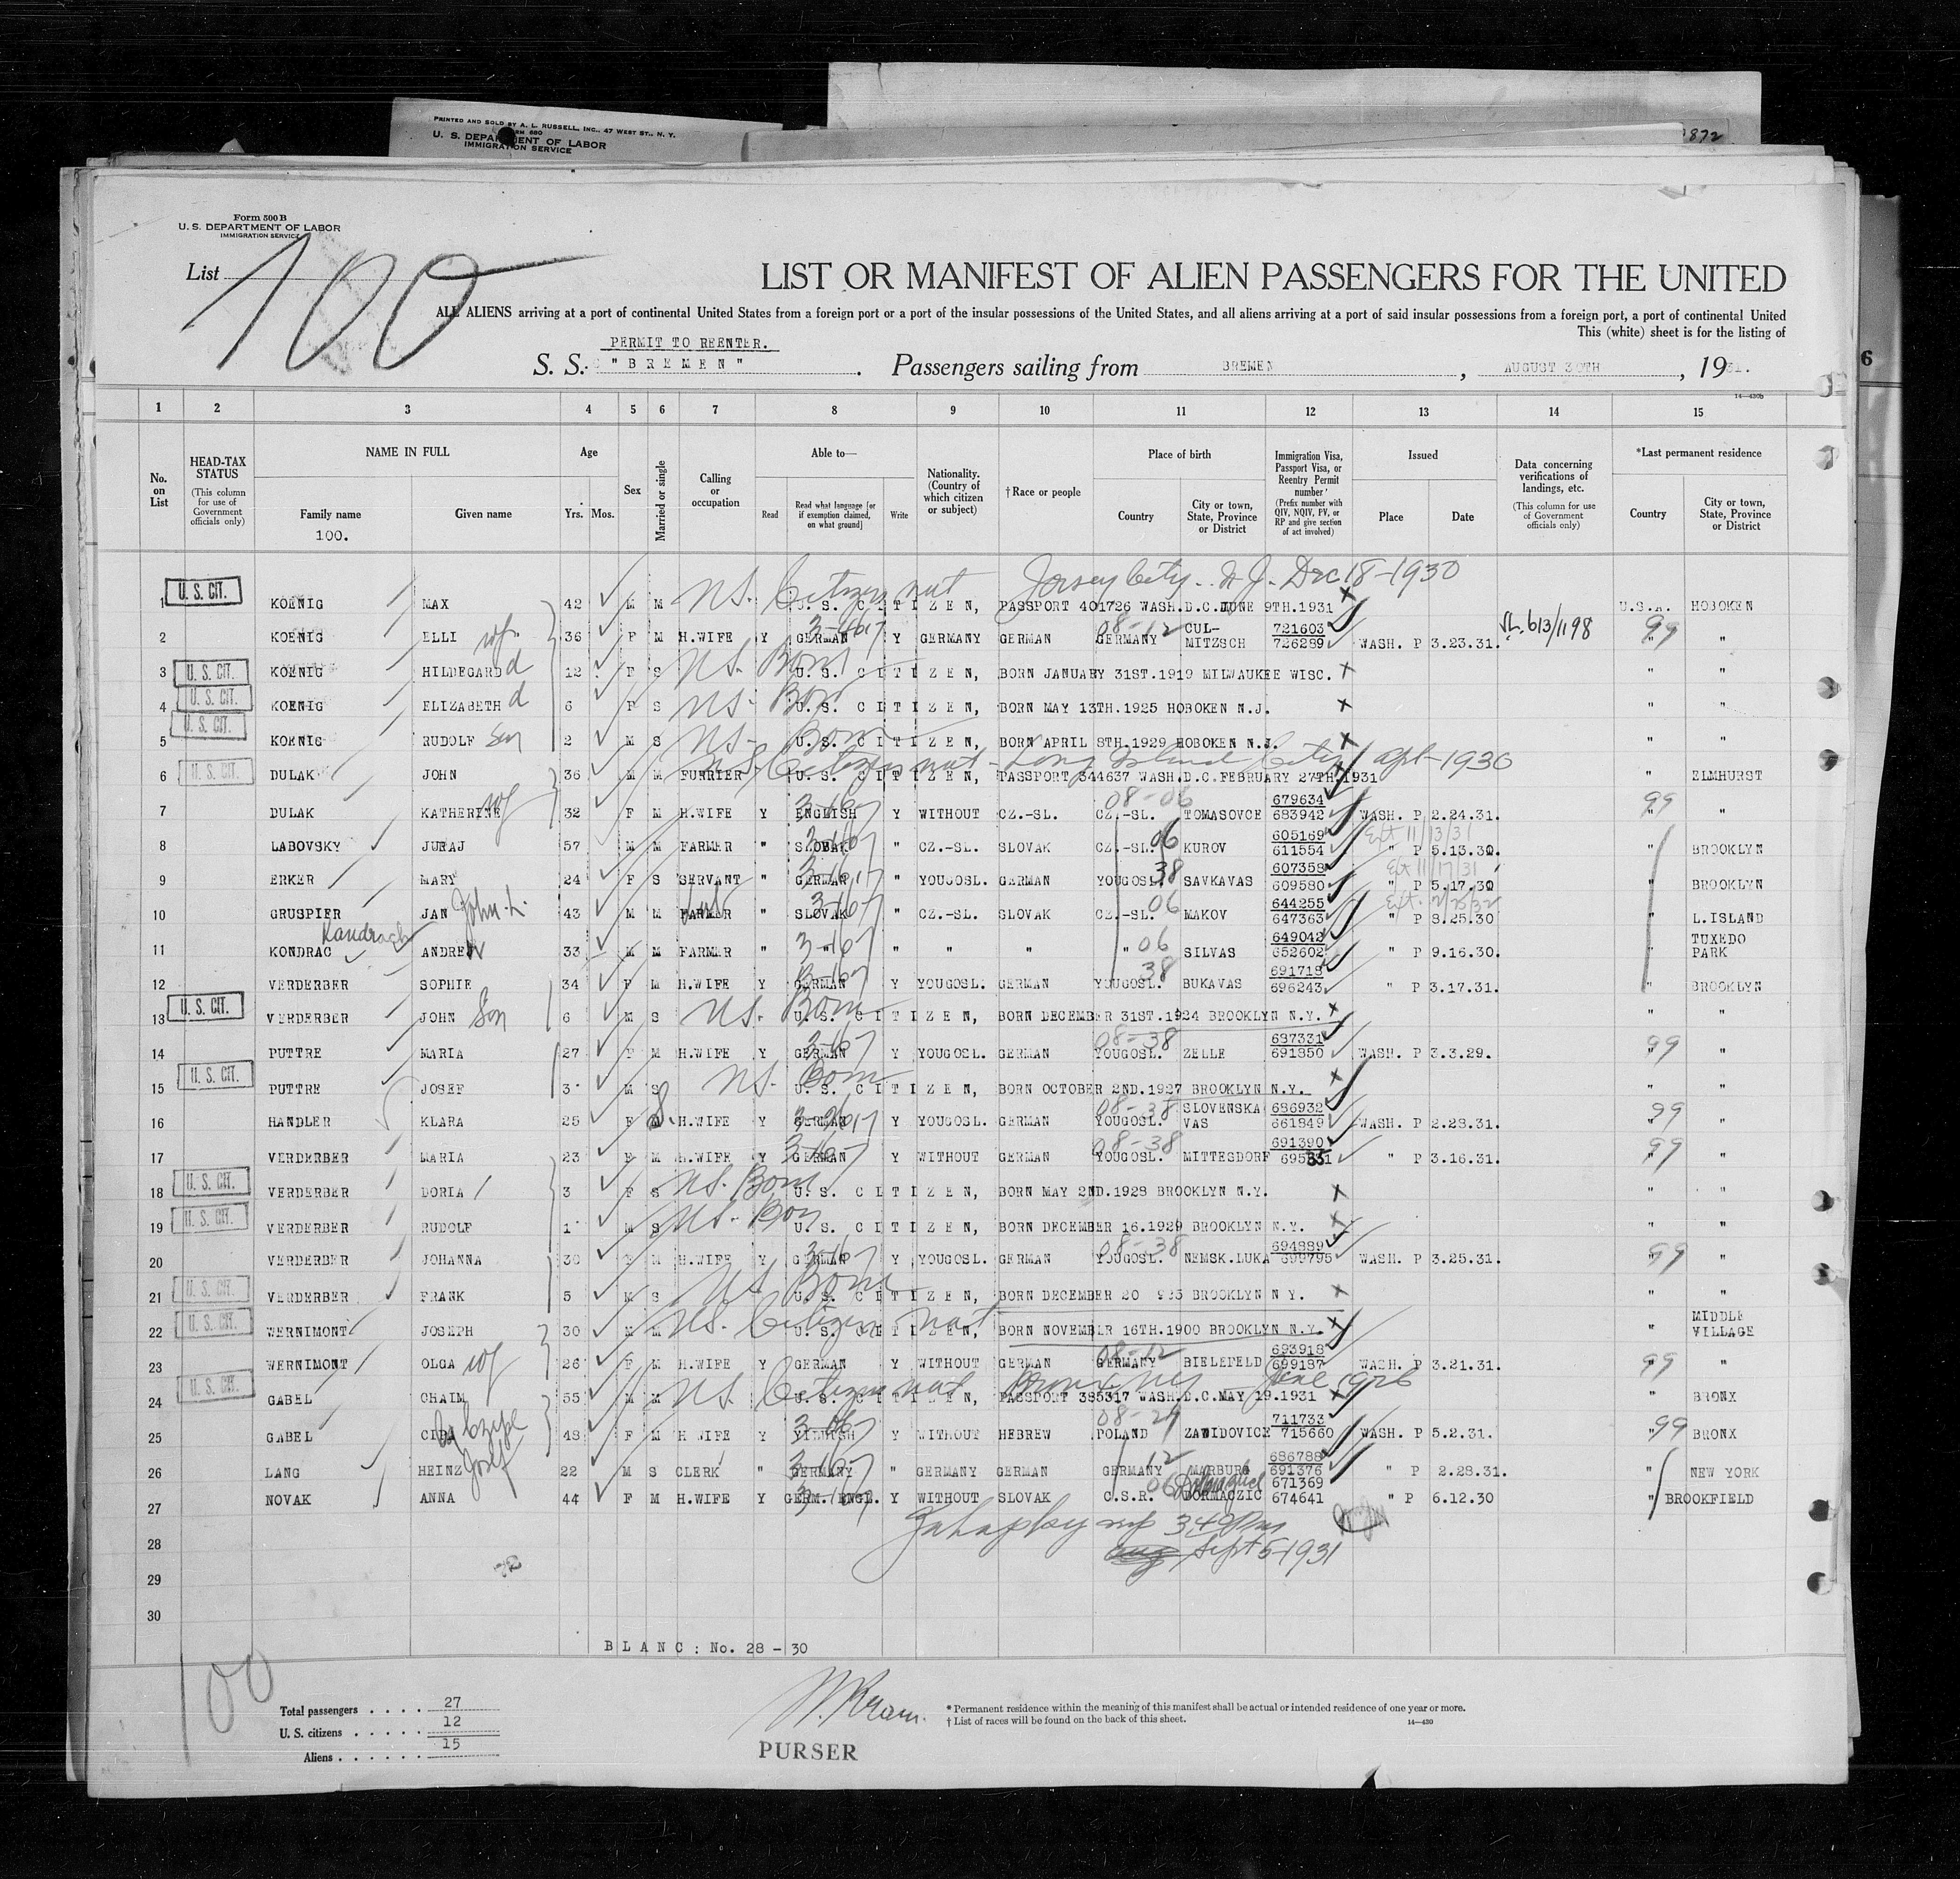 PRINTED AND SOLD BY A. L. RUSSELL, INC., 47 WEST ST., N. Y.
FORM 680
U. S. DEPARTMENT OF LABOR
IMMIGRATION SERVICE
872
6
Form 500 B
U. S. DEPARTMENT OF LABOR
IMMIGRATION SERVICE
List 100
LIST OR MANIFEST OF ALIEN PASSENGERS FOR THE UNITED
ALL ALIENS arriving at a port of continental United States from a foreign port or a port of the insular possessions of the United States, and all aliens arriving at a port of said insular possessions from a foreign port, a port of continental United
This (white) sheet is for the listing of
PERMIT TO REENTER.
S. S. "BREMEN" . Passengers sailing from BREMEN , AUGUST 30TH , 1931.
14—430b
1 2 3 4 5 6 7 8 9 10 11 12 13 14 15
No. on List
HEAD-TAX STATUS (This column for use of Government officials only)
NAME IN FULL
Family name
100.
Given name
Age
Yrs. Mos.
Sex
Married or single
Calling or occupation
Able to—
Read
Read what language [or if exemption claimed, on what ground]
Write
Nationality. (Country of which citizen or subject)
†Race or people
Place of birth
Country
City or town, State, Province or District
Immigration Visa, Passport Visa, or Reentry Permit number (Prefix number with QIV, NQIV, PV, or RP and give section of act involved)
Issued
Place
Date
Data concerning verifications of landings, etc. (This column for use of Government officials only)
*Last permanent residence
Country
City or town, State, Province or District
U.S. Citizen nat Jersey City. N.J. Dec 18-1930
1 U. S. CIT. KOENIG MAX 42 M M U.S. CITIZEN, PASSPORT 401726 WASH.D.C. JUNE 9TH.1931 U.S.A. HOBOKEN
2 KOENIG ELLI wf 36 F M H.WIFE Y GERMAN Y GERMANY GERMAN 08-12 GERMANY CUL-MITZSCH 721603 726289 WASH. P 3.23.31. 613/1198 99 " "
3 U. S. CIT. KOENIG HILDEGARD d 12 F S US. Born U.S. CITIZEN, BORN JANUARY 31ST.1919 MILWAUKEE WISC. " "
4 U. S. CIT. KOENIG ELIZABETH d 6 F S US. Born U.S. CITIZEN, BORN MAY 13TH.1925 HOBOKEN N.J. " "
5 U. S. CIT. KOENIG RUDOLF son 2 M S US. Born U.S. CITIZEN, BORN APRIL 8TH.1929 HOBOKEN N.J. " "
U.S. Citizen nat - Long Island City Apl-1930
6 U. S. CIT. DULAK JOHN 36 M M FURRIER U.S. CITIZEN, PASSPORT 344637 WASH.D.C.FEBRUARY 27TH.1931 " ELMHURST
7 DULAK KATHERINE wf 32 F M H.WIFE Y ENGLISH Y WITHOUT CZ.-SL. 08-06 CZ.-SL. TOMASOVCE 679634 683942 WASH. P 2.24.31. 99 " "
8 LABOVSKY JURAJ 57 M M FARMER " SLOVAK " CZ.-SL. SLOVAK CZ.-SL. 06 KUROV 605169 611554 Ext 11/13/31 " P 5.13.30. " BROOKLYN
9 ERKER MARY 24 F S SERVANT " GERMAN " YOUGOSL. GERMAN YOUGOSL. 38 SAVKAVAS 607358 609580 Ext 11/17/31 " P 5.17.30 " BROOKLYN
10 GRUSPIER JAN John L. 43 M M FARMER " SLOVAK " CZ.-SL. SLOVAK CZ.-SL. 06 MAKOV 644255 647363 " P 8.25.30 " L.ISLAND
11 KONDRAC ANDREW 33 M M FARMER " " " " " " 06 SILVAS 649042 652602 " P 9.16.30. " TUXEDO PARK
12 VERDERBER SOPHIE 34 F M H.WIFE Y GERMAN Y YOUGOSL. GERMAN YOUGOSL. 38 BUKAVAS 691718 696243 " P 3.17.31. " BROOKLYN
13 U. S. CIT. VERDERBER JOHN Son 6 M S US. Born U.S. CITIZEN, BORN DECEMBER 31ST.1924 BROOKLYN N.Y. " "
14 PUTTRE MARIA 27 F M H.WIFE Y GERMAN Y YOUGOSL. GERMAN 08-38 YOUGOSL. ZELLE 687331 691850 WASH. P 3.3.29. 99 " "
15 U. S. CIT. PUTTRE JOSEF 3 M S US. Born U.S. CITIZEN, BORN OCTOBER 2ND.1927 BROOKLYN N.Y. " "
16 HANDLER KLARA 25 F M S. H.WIFE Y GERMAN Y YOUGOSL. GERMAN 08-38 YOUGOSL. SLOVENSKA VAS 686932 661849 WASH. P 2.28.31. 99 " "
17 VERDERBER MARIA 23 F M H.WIFE Y GERMAN Y WITHOUT GERMAN 08-38 YOUGOSL. MITTESDORF 691390 695331 " P 3.16.31. 99 " "
18 U. S. CIT. VERDERBER DORIA 3 F S US. Born U.S. CITIZEN, BORN MAY 2ND.1928 BROOKLYN N.Y. " "
19 U. S. CIT. VERDERBER RUDOLF 1 M S US. Born U.S. CITIZEN, BORN DECEMBER 16.1929 BROOKLYN N.Y. " "
20 VERDERBER JOHANNA 30 F M H.WIFE Y GERMAN Y YOUGOSL. GERMAN 08-38 YOUGOSL. NEMSK.LUKA 694889 699795 WASH. P 3.25.31. 99 " "
21 U. S. CIT. VERDERBER FRANK 5 M S US Born U.S. CITIZEN, BORN DECEMBER 20 925 BROOKLYN N Y. " "
22 U. S. CIT. WERNIMONT JOSEPH 30 M M US. Citizen nat U.S. CITIZEN, BORN NOVEMBER 16TH.1900 BROOKLYN N.Y. " MIDDLE VILLAGE
23 WERNIMONT OLGA wf 26 F M H.WIFE Y GERMAN Y WITHOUT GERMAN 08-12 GERMANY BIELEFELD 693918 699187 WASH. P 3.21.31. 99 " "
24 U. S. CIT. GABEL CHAIM 55 M M US. Citizen nat June 1926 U.S. CITIZEN, PASSPORT 385317 WASH.D.C.MAY 19.1931 " BRONX
25 GABEL 48 F M H WIFE Y YIDDISH Y WITHOUT HEBREW 08-29 POLAND ZAWIDOVICE 711733 715660 WASH. P 5.2.31. 99 " BRONX
26 LANG HEINZ Josef 22 M S CLERK " GERMANY " GERMANY GERMAN GERMANY 12 MARBURG 686788 691376 " P 2.28.31. " NEW YORK
27 NOVAK ANNA 44 F M H.WIFE Y GERM. ENGL. Y WITHOUT SLOVAK C.S.R. 06 671369 674641 " P 6.12.30 " BROOKFIELD
28 3.40 Pm
Sept 5-1931
29
30
BLANC: No. 28 - 30
100
Total passengers . . . . 27
U. S. citizens . . . . . 12
Aliens . . . . . . 15
PURSER
* Permanent residence within the meaning of this manifest shall be actual or intended residence of one year or more.
† List of races will be found on the back of this sheet.
14—430